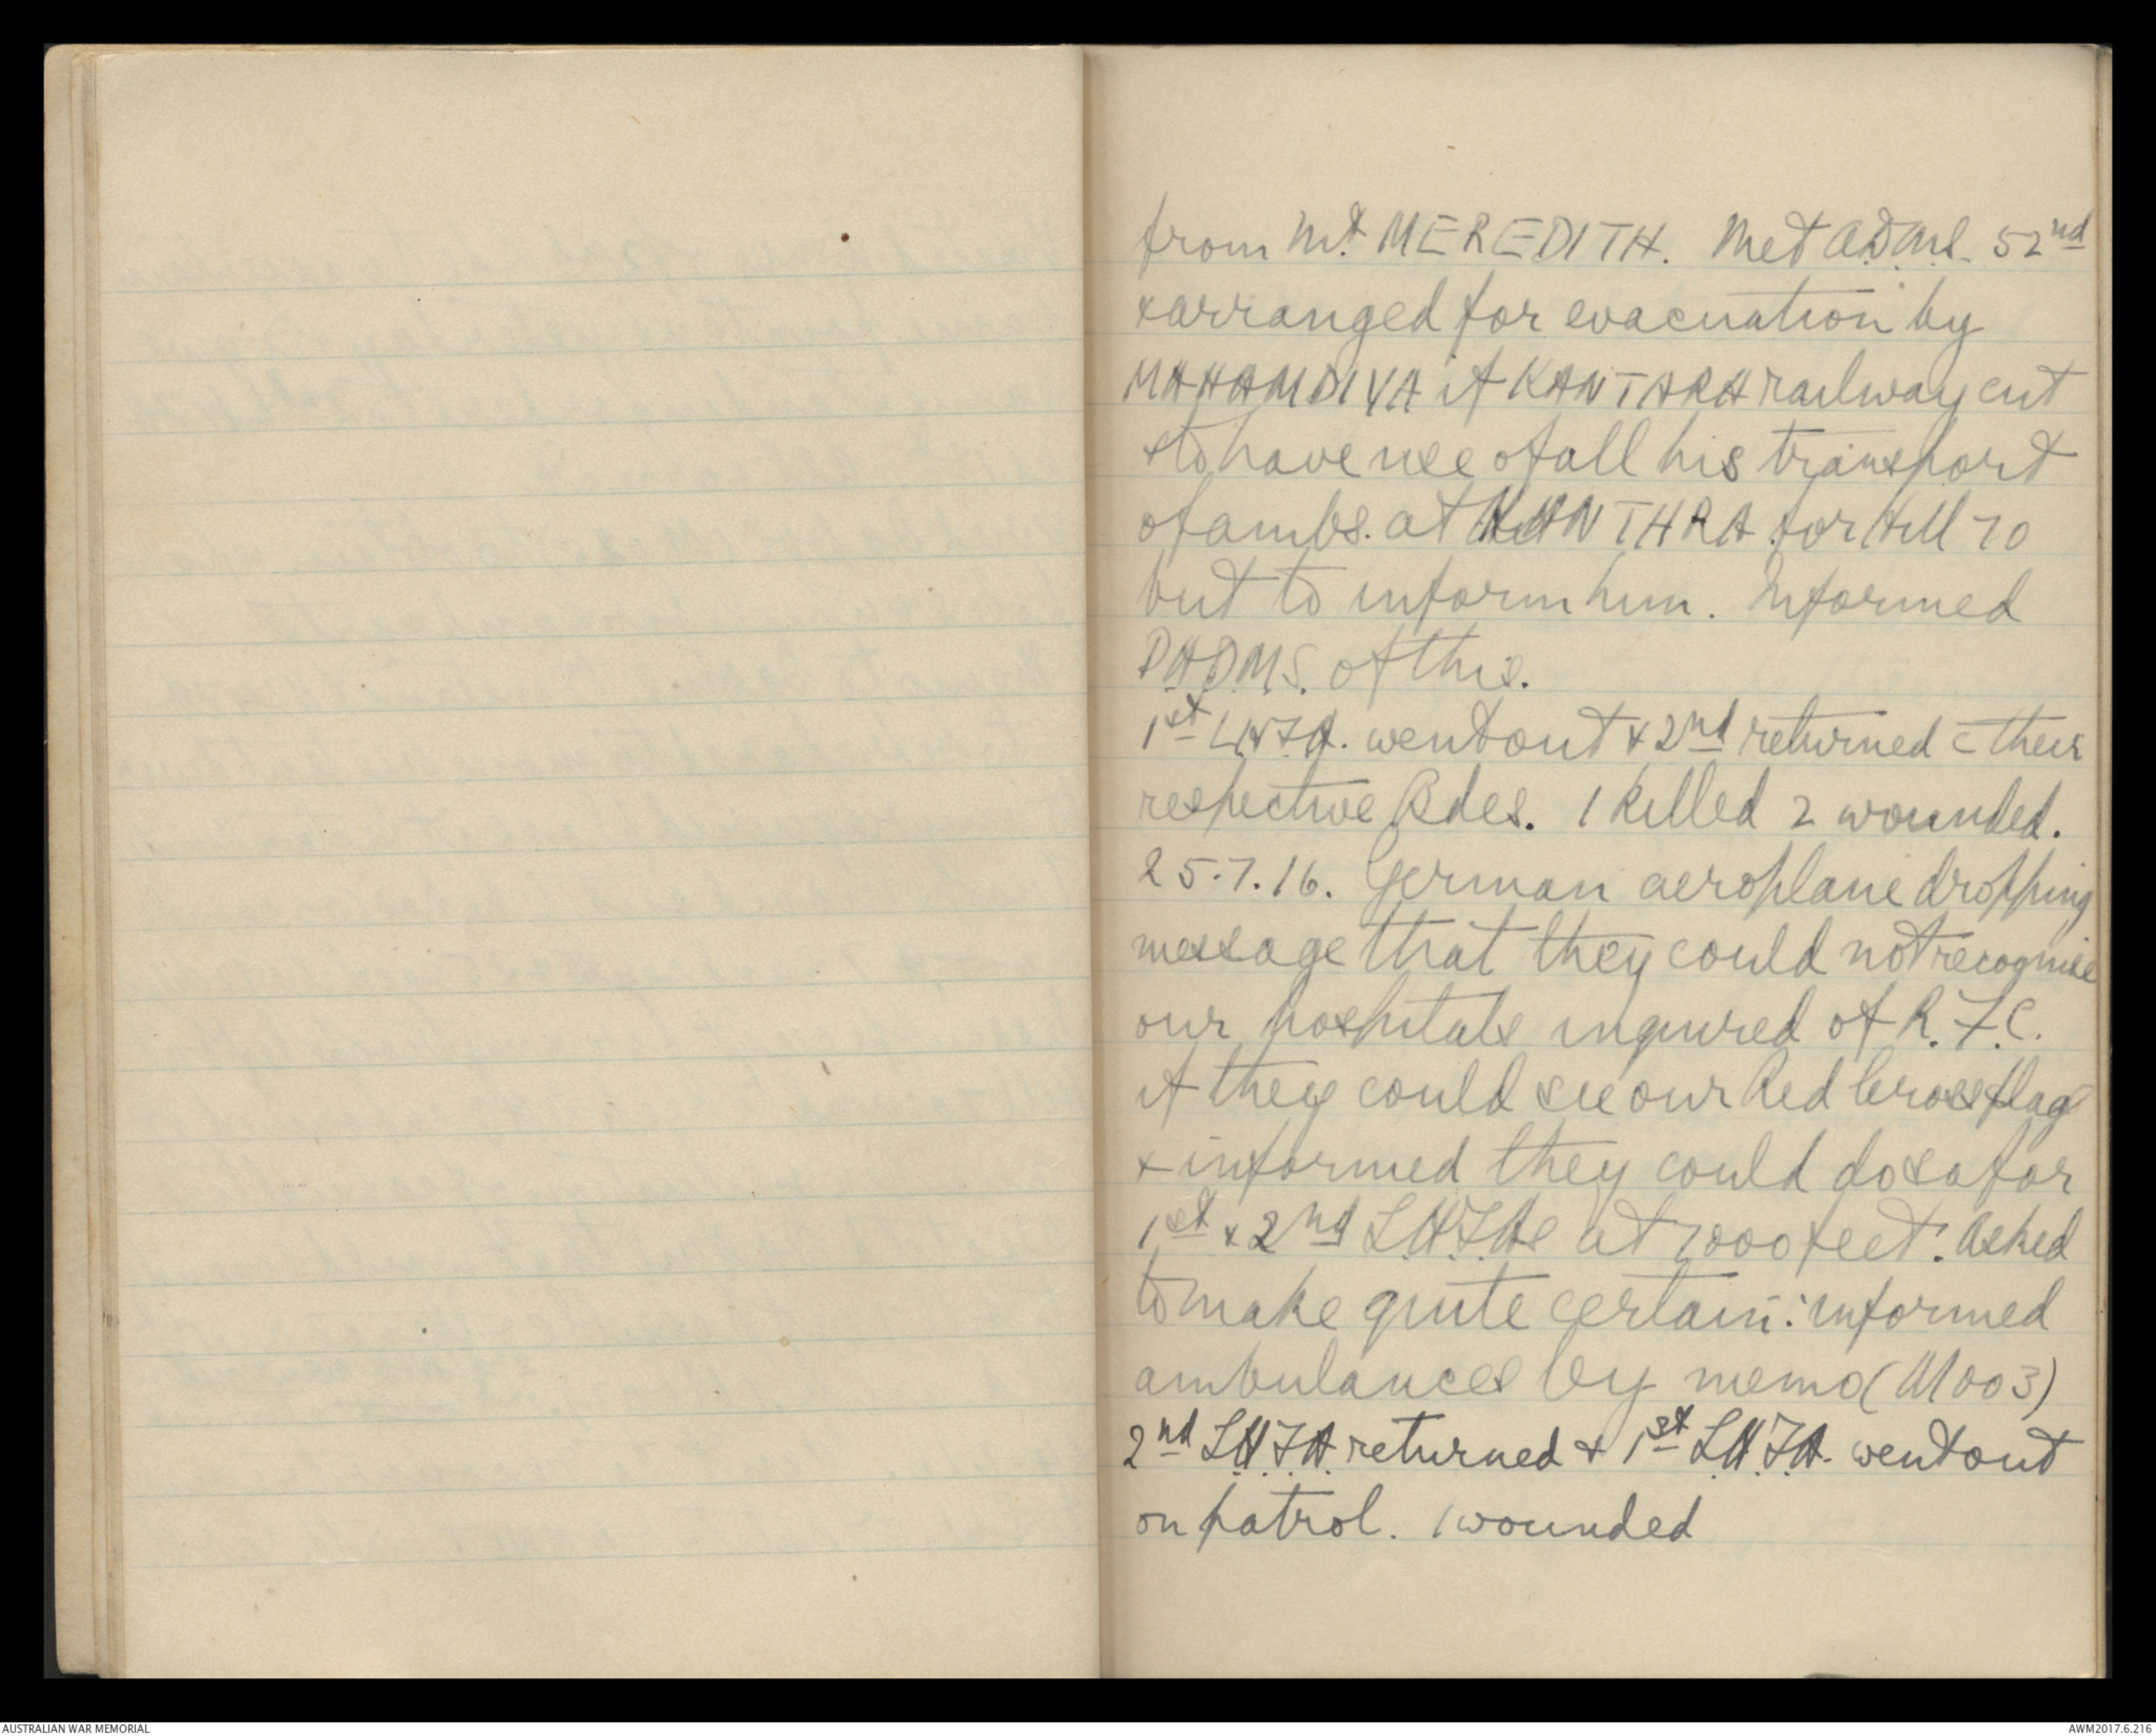 from Mt. MEREDITH. Met A.D.M.S. 52nd
& arranged for evacuation by
MAHAMDIYA if KANTARA railway cut
& to have use of all his transport
of ambs. at KANTHRA for Hill 70
but to inform him. Informed
D.A.D.M.S. of this.
1st L.H.F.A. went out & 2nd returned c their
respective Bdes. 1 killed 2 wounded.
25.7.16. German aeroplane dropping
message that they could not recognise
our hospitals inquired of R.F.C.
if they could see our Red Cross flag
& informed they could do so for
1st & 2nd L.H.F.As at 7000 feet. Asked
to make quite certain: informed
ambulances by memo (M003)
2nd L.H.F.A. returned & 1st L.H.F.A. went out
on patrol. 1 wounded
AUSTRALIAN WAR MEMORIAL
AWM2017.6.216